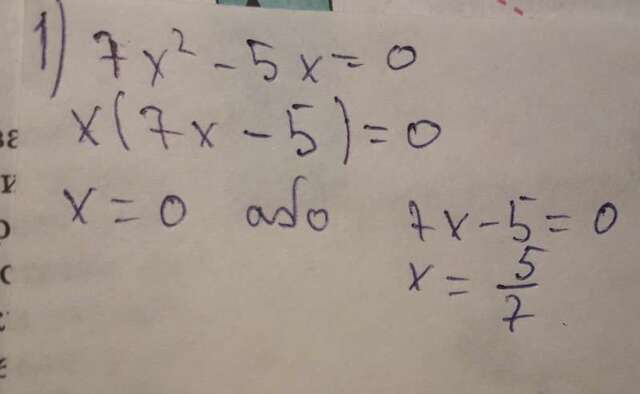 1) 7x² - 5x = 0
x(7x - 5) = 0
x = 0 або 7x - 5 = 0
x = 5/7